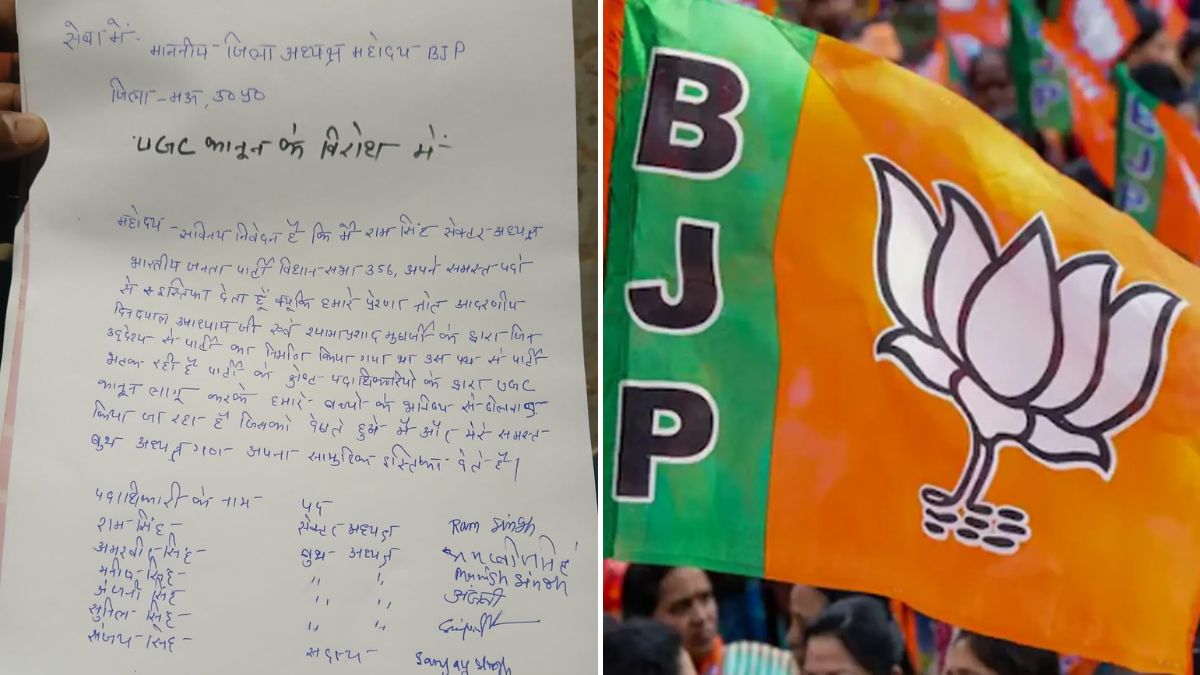 सेवा में.
माननीय - जिला अध्यक्ष महोदय BJP
जिला - मऊ, उ०प्र०
UGC कानून के विरोध में
महोदय - सविनय निवेदन है कि मैं राम सिंह सेक्टर-अध्यक्ष
भारतीय जनता पार्टी विधान-सभा 356, अपने समस्त पदो
से इस्तिफा देता हूँ क्यूकि हमारे प्रेरणा स्रोत आदरणीय
दिनदयाल उपाध्याय जी एवं श्यामाप्रशाद मुखर्जी के द्वारा जिस
उद्देश्य से पार्टी का निर्माण किया गया था उस पथ से पार्टी
भटक रही है पार्टी के पदाधिकारियो के द्वारा UGC
कानून लागू करके हमारे बच्चो के भविष्य से
किया जा रहा है जिसको देखते हुअे मैं और मेरे समस्त
बुथ अध्यक्ष गण अपना सामुहिक इस्तिफा देते है।
पदाधिकारी के नाम - पद
राम सिंह - सेक्टर अध्यक्ष Ram Singh
अमरजीत सिंह - बुथ - अध्यक्ष
मनीष सिंह - " " Manish Singh
अंजनी सिंह " " अंजनी
सुनिल सिंह - " "
संजय सिंह - सदस्य - Sanjay Singh
BJP
BJP
BJP